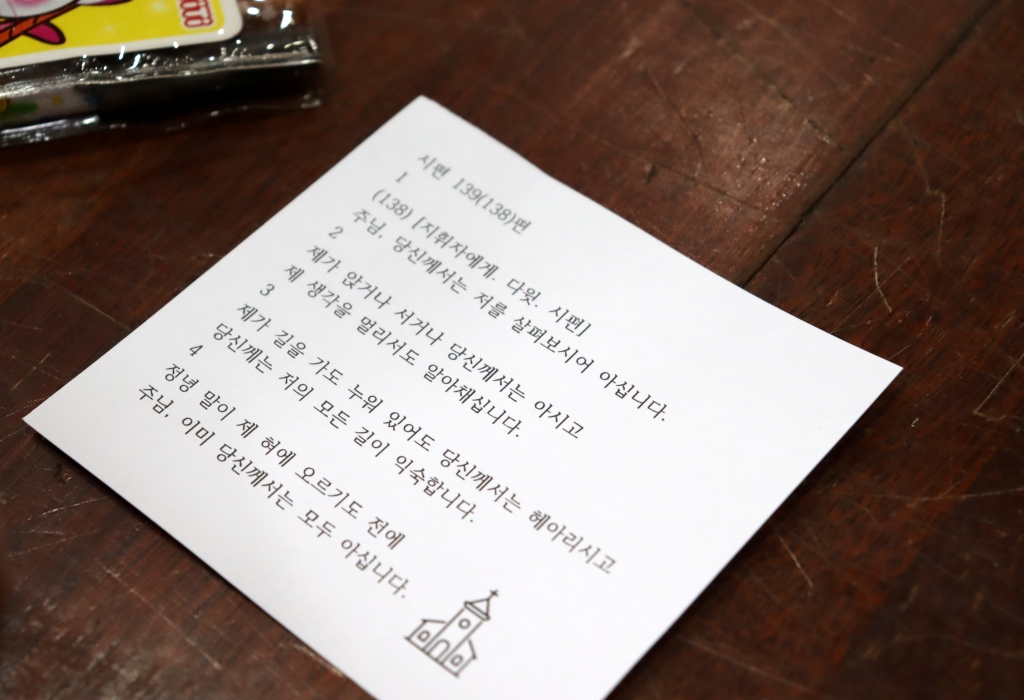 시편 139(138)편
1
(138) [지휘자에게. 다윗. 시편]
주님, 당신께서는 저를 살펴보시어 아십니다.
2
제가 앉거나 서거나 당신께서는 아시고
제 생각을 멀리서도 알아채십니다.
3
제가 길을 가도 누워 있어도 당신께서는 헤아리시고
당신께는 저의 모든 길이 익숙합니다.
4
정녕 말이 제 혀에 오르기도 전에
주님, 이미 당신께서는 모두 아십니다.